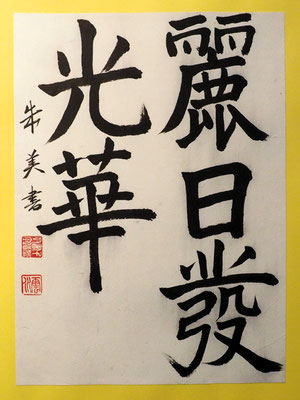 麗日發
光華
朱美書